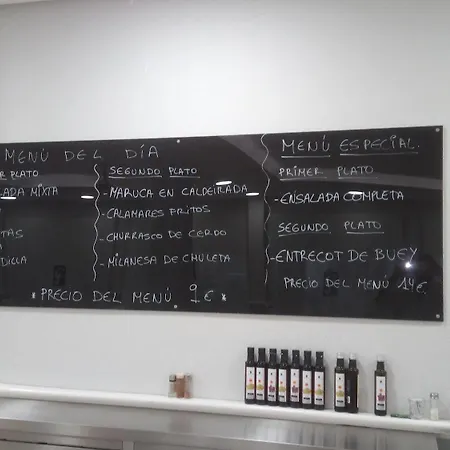 MENÚ DEL DÍA
PLATO
MIXTA
SEGUNDO PLATO
-MARUCA EN CALDEIRADA
-CALAMARES FRITOS
-CHURRASCO DE CERDO
-MILANESA DE CHULETA
* PRECIO DEL MENÚ 9 € *
MENÚ ESPECIAL.
PRIMER PLATO
-ENSALADA COMPLETA
SEGUNDO PLATO
-ENTRECOT DE BUEY
PRECIO DEL MENÚ 14 €.